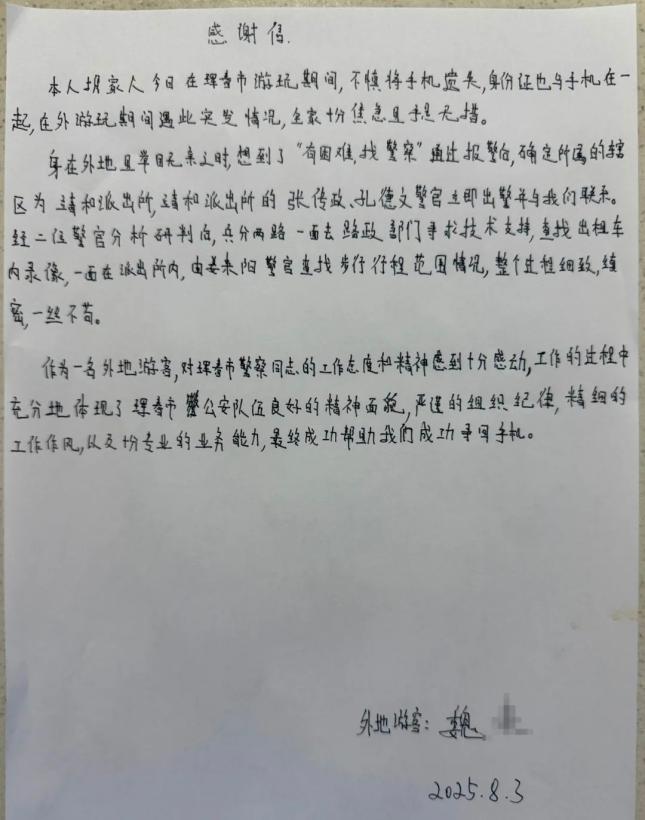 感谢信.
本人携家人今日在珲春市游玩期间,不慎将手机遗失,身份证也与手机在一
起,在外游玩期间遇此突发情况,全家十分焦急且手足无措。
身在外地且举目无亲之时,想到了“有困难,找警察”通过报警后,确定所属的辖
区为靖和派出所,靖和派出所的张传政、孔德文警官立即出警并与我们联系。
经二位警官分析研判后,兵分两路一面去路政部门寻求技术支持,查找出租车
内录像,一面在派出所内,由姜来阳警官查找步行行程范围情况,整个过程细致,缜
密,一丝不苟。
作为一名外地游客,对珲春市警察同志的工作态度和精神感到十分感动,工作的过程中
充分地体现了珲春市公安队伍良好的精神面貌,严谨的组织纪律,精细的
工作作风,以及十分专业的业务能力,最终成功帮助我们成功寻回手机。
外地游客:魏
2025.8.3